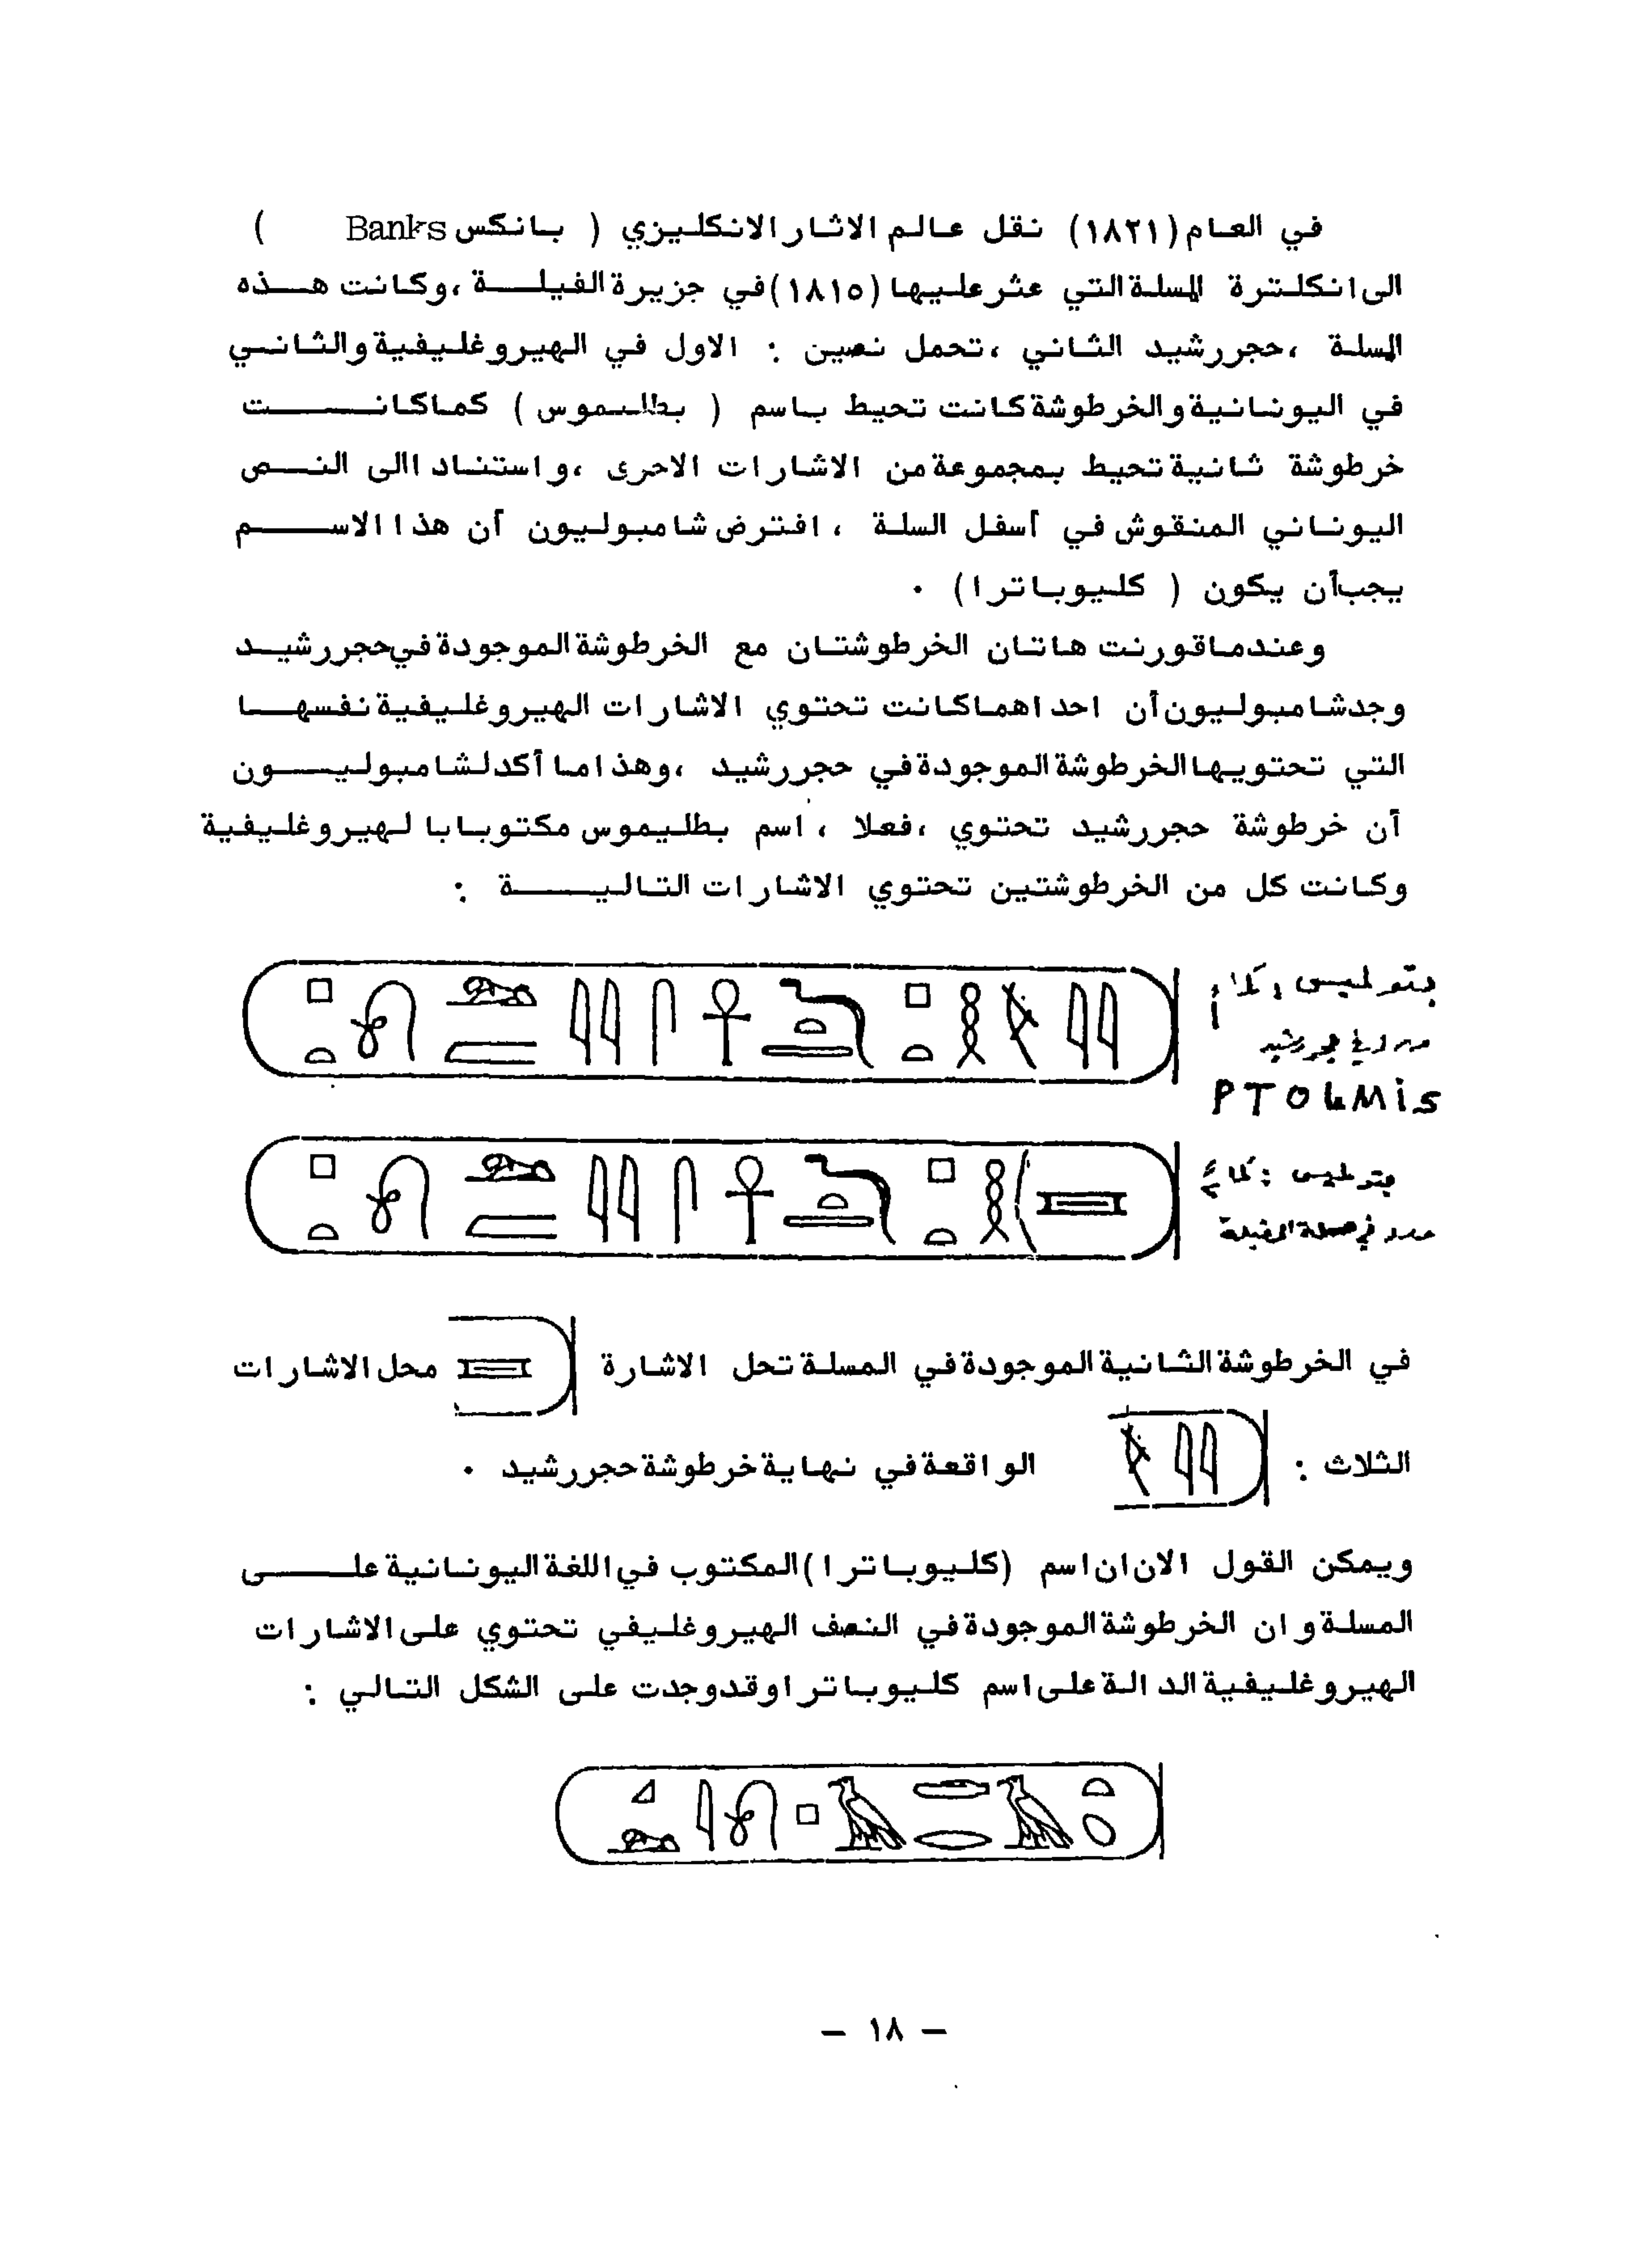 في العام (١٨٢١) نقل عالم الاثار الانكليزي ( بانكس Banks )
الى انكلترة المسلة التي عثر عليها (١٨١٥) في جزيرة الفيلة ، وكانت هذه
المسلة ، حجر رشيد الثاني ، تحمل نصين : الاول في الهيروغليفية والثاني
في اليونانية والخرطوشة كانت تحيط باسم ( بطليموس ) كما كانت
خرطوشة ثانية تحيط بمجموعة من الاشارات الاخرى ، واستنادا الى النص
اليوناني المنقوش في أسفل السلة ، افترض شامبوليون أن هذا الاسم
يجب أن يكون ( كليوباترا ) .
وعندما قورنت هاتان الخرطوشتان مع الخرطوشة الموجودة في حجر رشيد
وجد شامبوليون أن احداهما كانت تحتوي الاشارات الهيروغليفية نفسها
التي تحتويها الخرطوشة الموجودة في حجر رشيد ، وهذا ما أكد لشامبوليون
أن خرطوشة حجر رشيد تحتوي ، فعلا ، اسم بطليموس مكتوبا بالهيروغليفية
وكانت كل من الخرطوشتين تحتوي الاشارات التالية :
بتولميس
PTOLMiS
في الخرطوشة الثانية الموجودة في المسلة تحل الاشارة محل الاشارات
الثلاث : الواقعة في نهاية خرطوشة حجر رشيد .
ويمكن القول الان ان اسم (كليوباترا) المكتوب في اللغة اليونانية على
المسلة وان الخرطوشة الموجودة في النصف الهيروغليفي تحتوي على الاشارات
الهيروغليفية الدالة على اسم كليوباترا وقد وجدت على الشكل التالي :
— ١٨ —